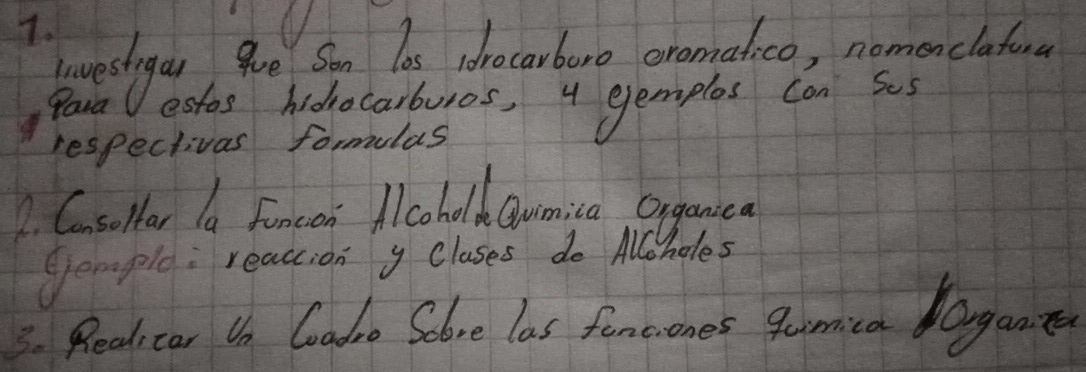 1.
Investigar que Son los idrocarburo aromatico, nomenclatura
Para estos hidrocarburos, 4 ejemplos con Sus
respectivas formulas
2. Consoltar la funcion Alcohol de Quimica Organica
Ejemplo: reaccion y Clases de Alcoholes
3. Realizar Un Coadro Sobre las funciones quimica Organica